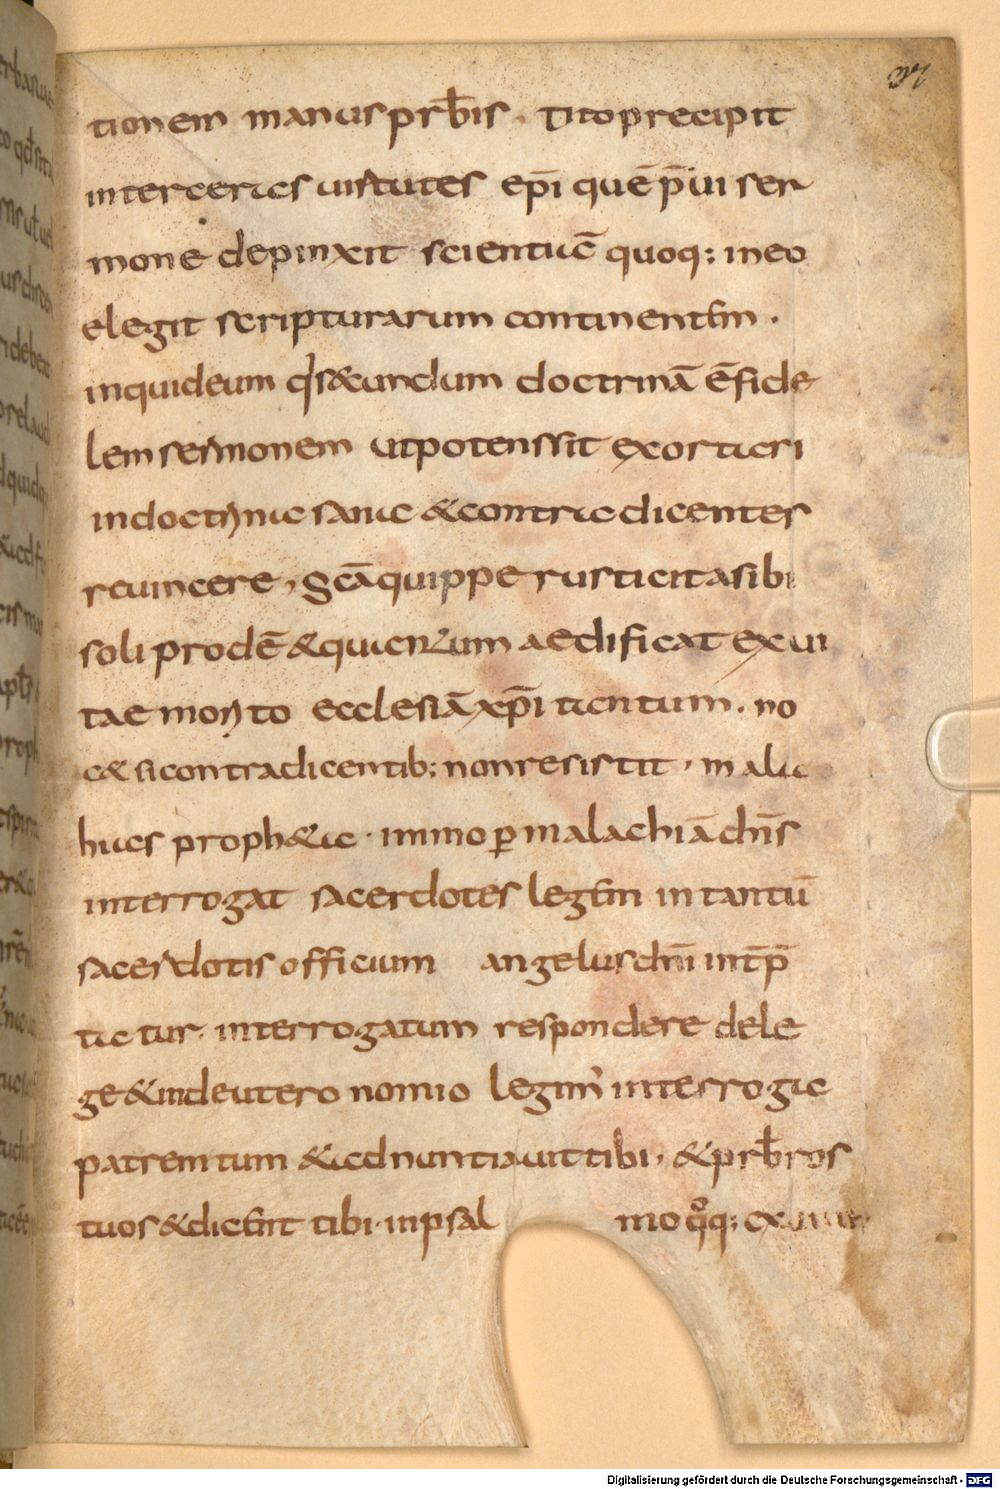 37
tionem manus prb̄is. Tito precipit
inter ceteras uirtutes ep̄i quē p̄ui ser
mone depinxit scientiā quoq; in eo
elegit scripturarum continentem.
inquid eum q̓ secundum doctrinā ē fide
lem sermonem ut potens sit exortari
in doctrina sana & contradicentes
reuincere, s̄cā quippe rusticitas sibi
soli prodē & quantum aedificat ex ui
tae mento ecclesiā xp̄i tantum. no
c& si contradicentib; non resistit, malac
hias proph&a. immo ꝑ malachiā dn̄s
interroga sacerdotes legem in tantū
sacerdotis officium angelus dn̄i int̄p̄
ta tur. interrogatum respondere de le
ge & in deutero nomio legim̓ interroga
patrem tuum & adnuntiauit tibi, & prb̄ros
tuos & dicent tibi. in psal mo q̊q;
Digitalisierung gefördert durch die Deutsche Forschungsgemeinschaft - DFG